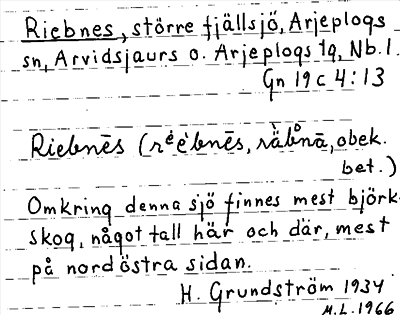 Riebnes, större fjällsjö, Arjeplogs
sn, Arvidsjaurs o. Arjeplogs tg, Nb. l.
Gn 19 c 4:13
Riebnēs (, obek.
bet.)
Omkring denna sjö finnes mest björk-
skog, något tall här och där, mest
på nordöstra sidan.
H. Grundström 1934
M.L. 1966